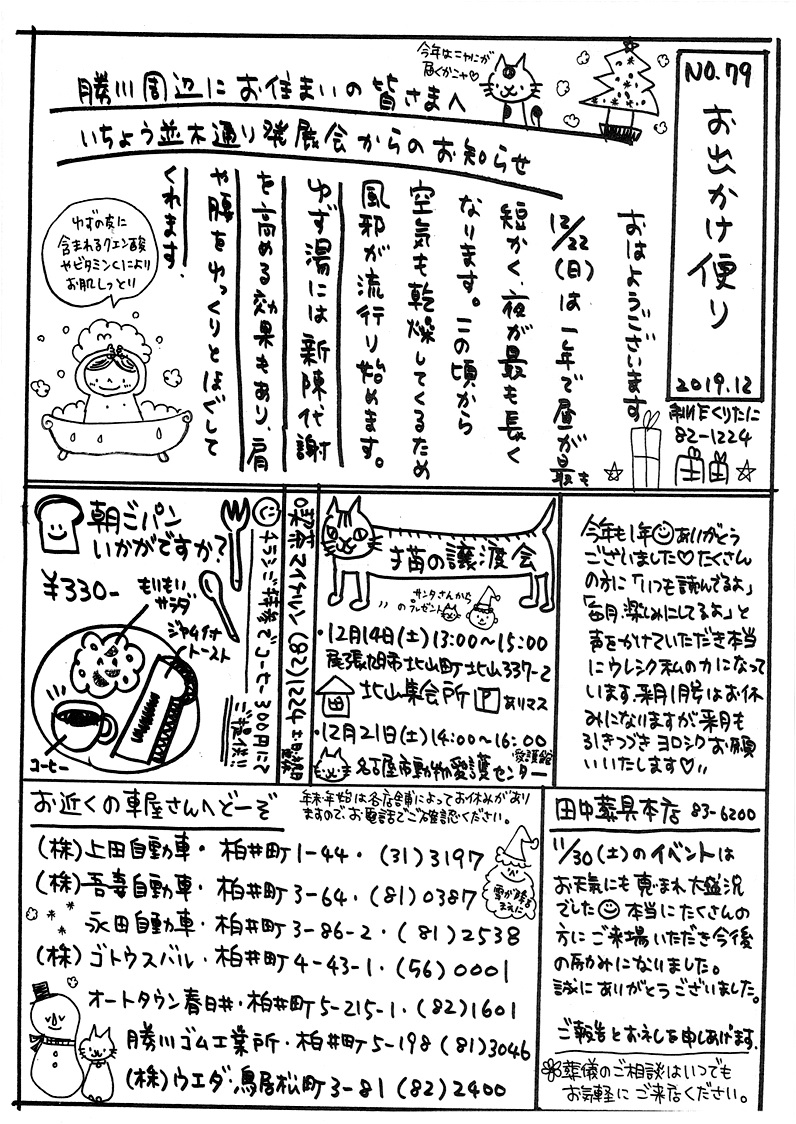 NO.79
お出かけ便り
2019.12
制作くりたに
82-1224
今年はニャにが
届くかニャ♡
勝川周辺にお住まいの皆さまへ
いちょう並木通り発展会からのお知らせ
おはようございます
12/22(日)は一年で昼が最も
短かく、夜が最も長く
なります。この頃から
空気も乾燥してくるため
風邪が流行り始めます。
ゆず湯には新陳代謝
を高める効果もあり、肩
や腰をゆっくりとほぐして
くれます。
ゆずの皮に
含まれるクエン酸
やビタミンCにより
お肌しっとり
朝ごパン
いかがですか?
¥330-
もりもり
サラダ
ジャム付
トースト
コーヒー
チラシご持参でコーヒー300円にて
ご提供!!
喫茶マイトルン(82)1224 土・日・祝日
猫の譲渡会
サンタさんから
のプレゼント
・12月14日(土)13:00〜15:00
尾張旭市北山町北山337-2
北山集会所 Pありマス
・12月21日(土)14:00〜16:00
愛護館
名古屋市動物愛護センター
今年も1年ありがとう
ございました♡たくさん
の方に「いつも読んでるよ」
「毎月、楽しみにしてるよ」と
声をかけていただき本当
にウレシク私の力になって
います。来月1月号はお休
みになりますが来月も
引きつづきヨロシクお願
いいたします♡!!
お近くの車屋さんへどーぞ
年末年始は各店舗によってお休みがあり
ますので、お電話でご確認ください。
(株)上田自動車・柏井町1-44・(31)3197
(株)吾妻自動車・柏井町3-64・(81)0387
永田自動車・柏井町3-86-2・(81)2538
(株)ゴトウスバル・柏井町4-43-1・(56)0001
オートタウン春日井・柏井町5-215-1・(82)1601
勝川ゴム工業所・柏井町5-198(81)3046
(株)ウエダ・鳥居松町3-81(82)2400
雪が降る
田中葬具本店 83-6200
11/30(土)のイベントは
お天気にも恵まれ大盛況
でした 本当にたくさんの
方にご来場いただき今後
の励みになりました。
誠にありがとうございました。
ご報告とお礼を申しあげます。
葬儀のご相談はいつでも
お気軽にご来店ください。